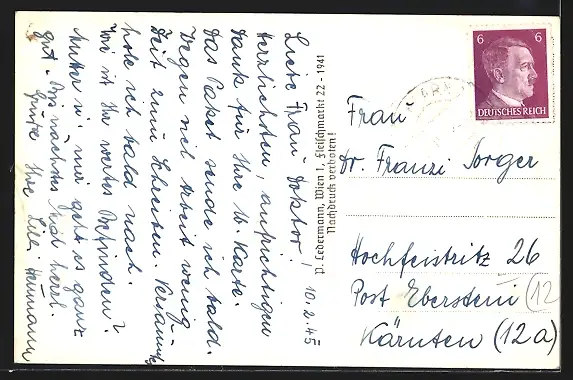 10.2.45
Liebe Frau Doktor!
Herrlichsten, aufrichtigen
Dank für Ihre w. Karte.
Das Paket sende ich bald.
Wegen viel Arbeit wenig
Zeit zum Schreiben.
hole ich bald nach.
Wie ist Ihr wertes Befinden?
Mutter u. mir geht es ganz
gut. Bis nächstes Mal herzl.
Grüße Ihre Hermann
P. Ledermann, Wien I, Fleischmarkt 22 - 1941
Nachdruck verboten!
6 6
DEUTSCHES REICH
Frau
Dr. Franzi Sorger
Hochfeistritz 26
Post Eberstein (12
Kärnten (12a)